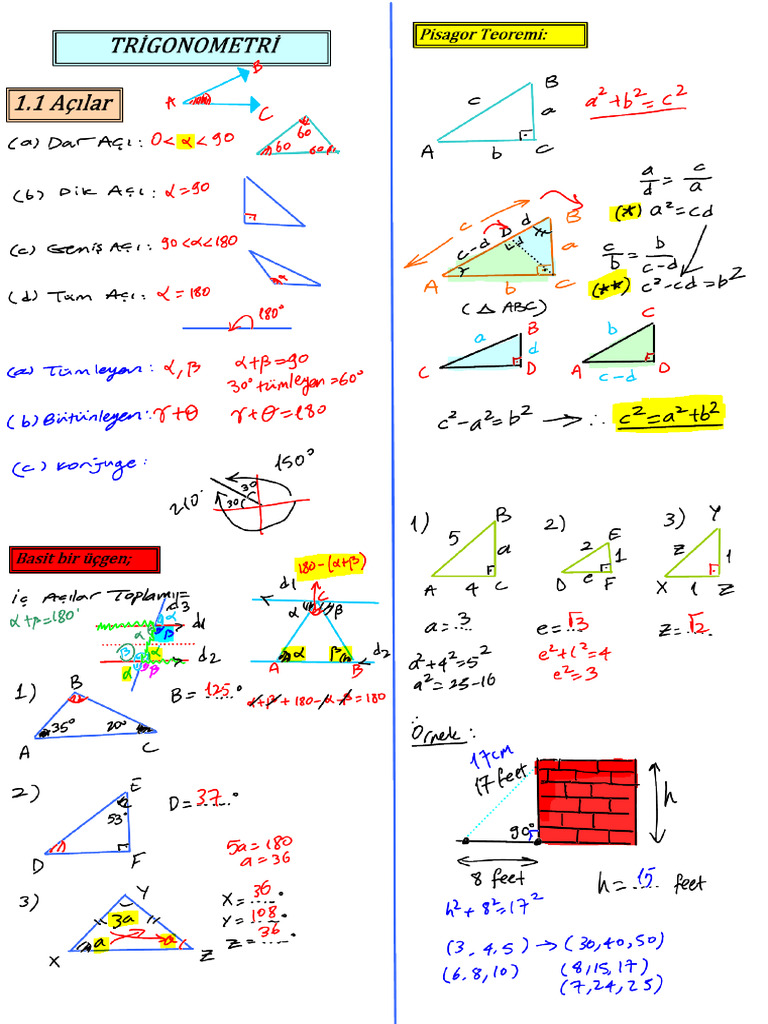 TRİGONOMETRİ
1.1 Açılar
A B C
(a) Dar Açı: 0<α<90
60 60 60
(b) Dik Açı: α=90
(c) Geniş Açı: 90<α<180
α
(d) Tam Açı: α=180
180°
(a) Tümleyen: α,β α+β=90
30° tümleyen=60°
(b) Bütünleyen: γ+θ γ+θ=180
(c) Konjuge:
150°
210° 30 30
Basit bir üçgen;
180-(α+β)
İç Açılar Toplamı=
α+β=180°
d3 d1 d2
α β α β α β
d1 C d2
α β
A α β B
α+β+180-α-β=180
1) B
35° 20°
A C
B=125°
2) E
53°
D F
D=37°
5a=180
a=36
3) Y
3a
a a
X Z
X=36°
Y=108°
Z=36°
Pisagor Teoremi:
B
c a
A b C
a²+b²=c²
a/d = c/a
(*) a²=cd
c/b = b/(c-d)
(**) c²-cd=b²
c
D d B
c-d a
A b C
(△ABC)
B
a d
C D
C
b
A c-d D
c²-a²=b² → ∴ c²=a²+b²
1) B
5 a
A 4 C
a=3
a²+4²=5²
a²=25-16
2) E
2 1
D e F
e=√3
e²+1²=4
e²=3
3) Y
z 1
X 1 Z
z=√2
Örnek:
17cm
17 feet
90°
h
8 feet
h=15 feet
h²+8²=17²
(3,4,5) → (30,40,50)
(6,8,10) (8,15,17)
(7,24,25)